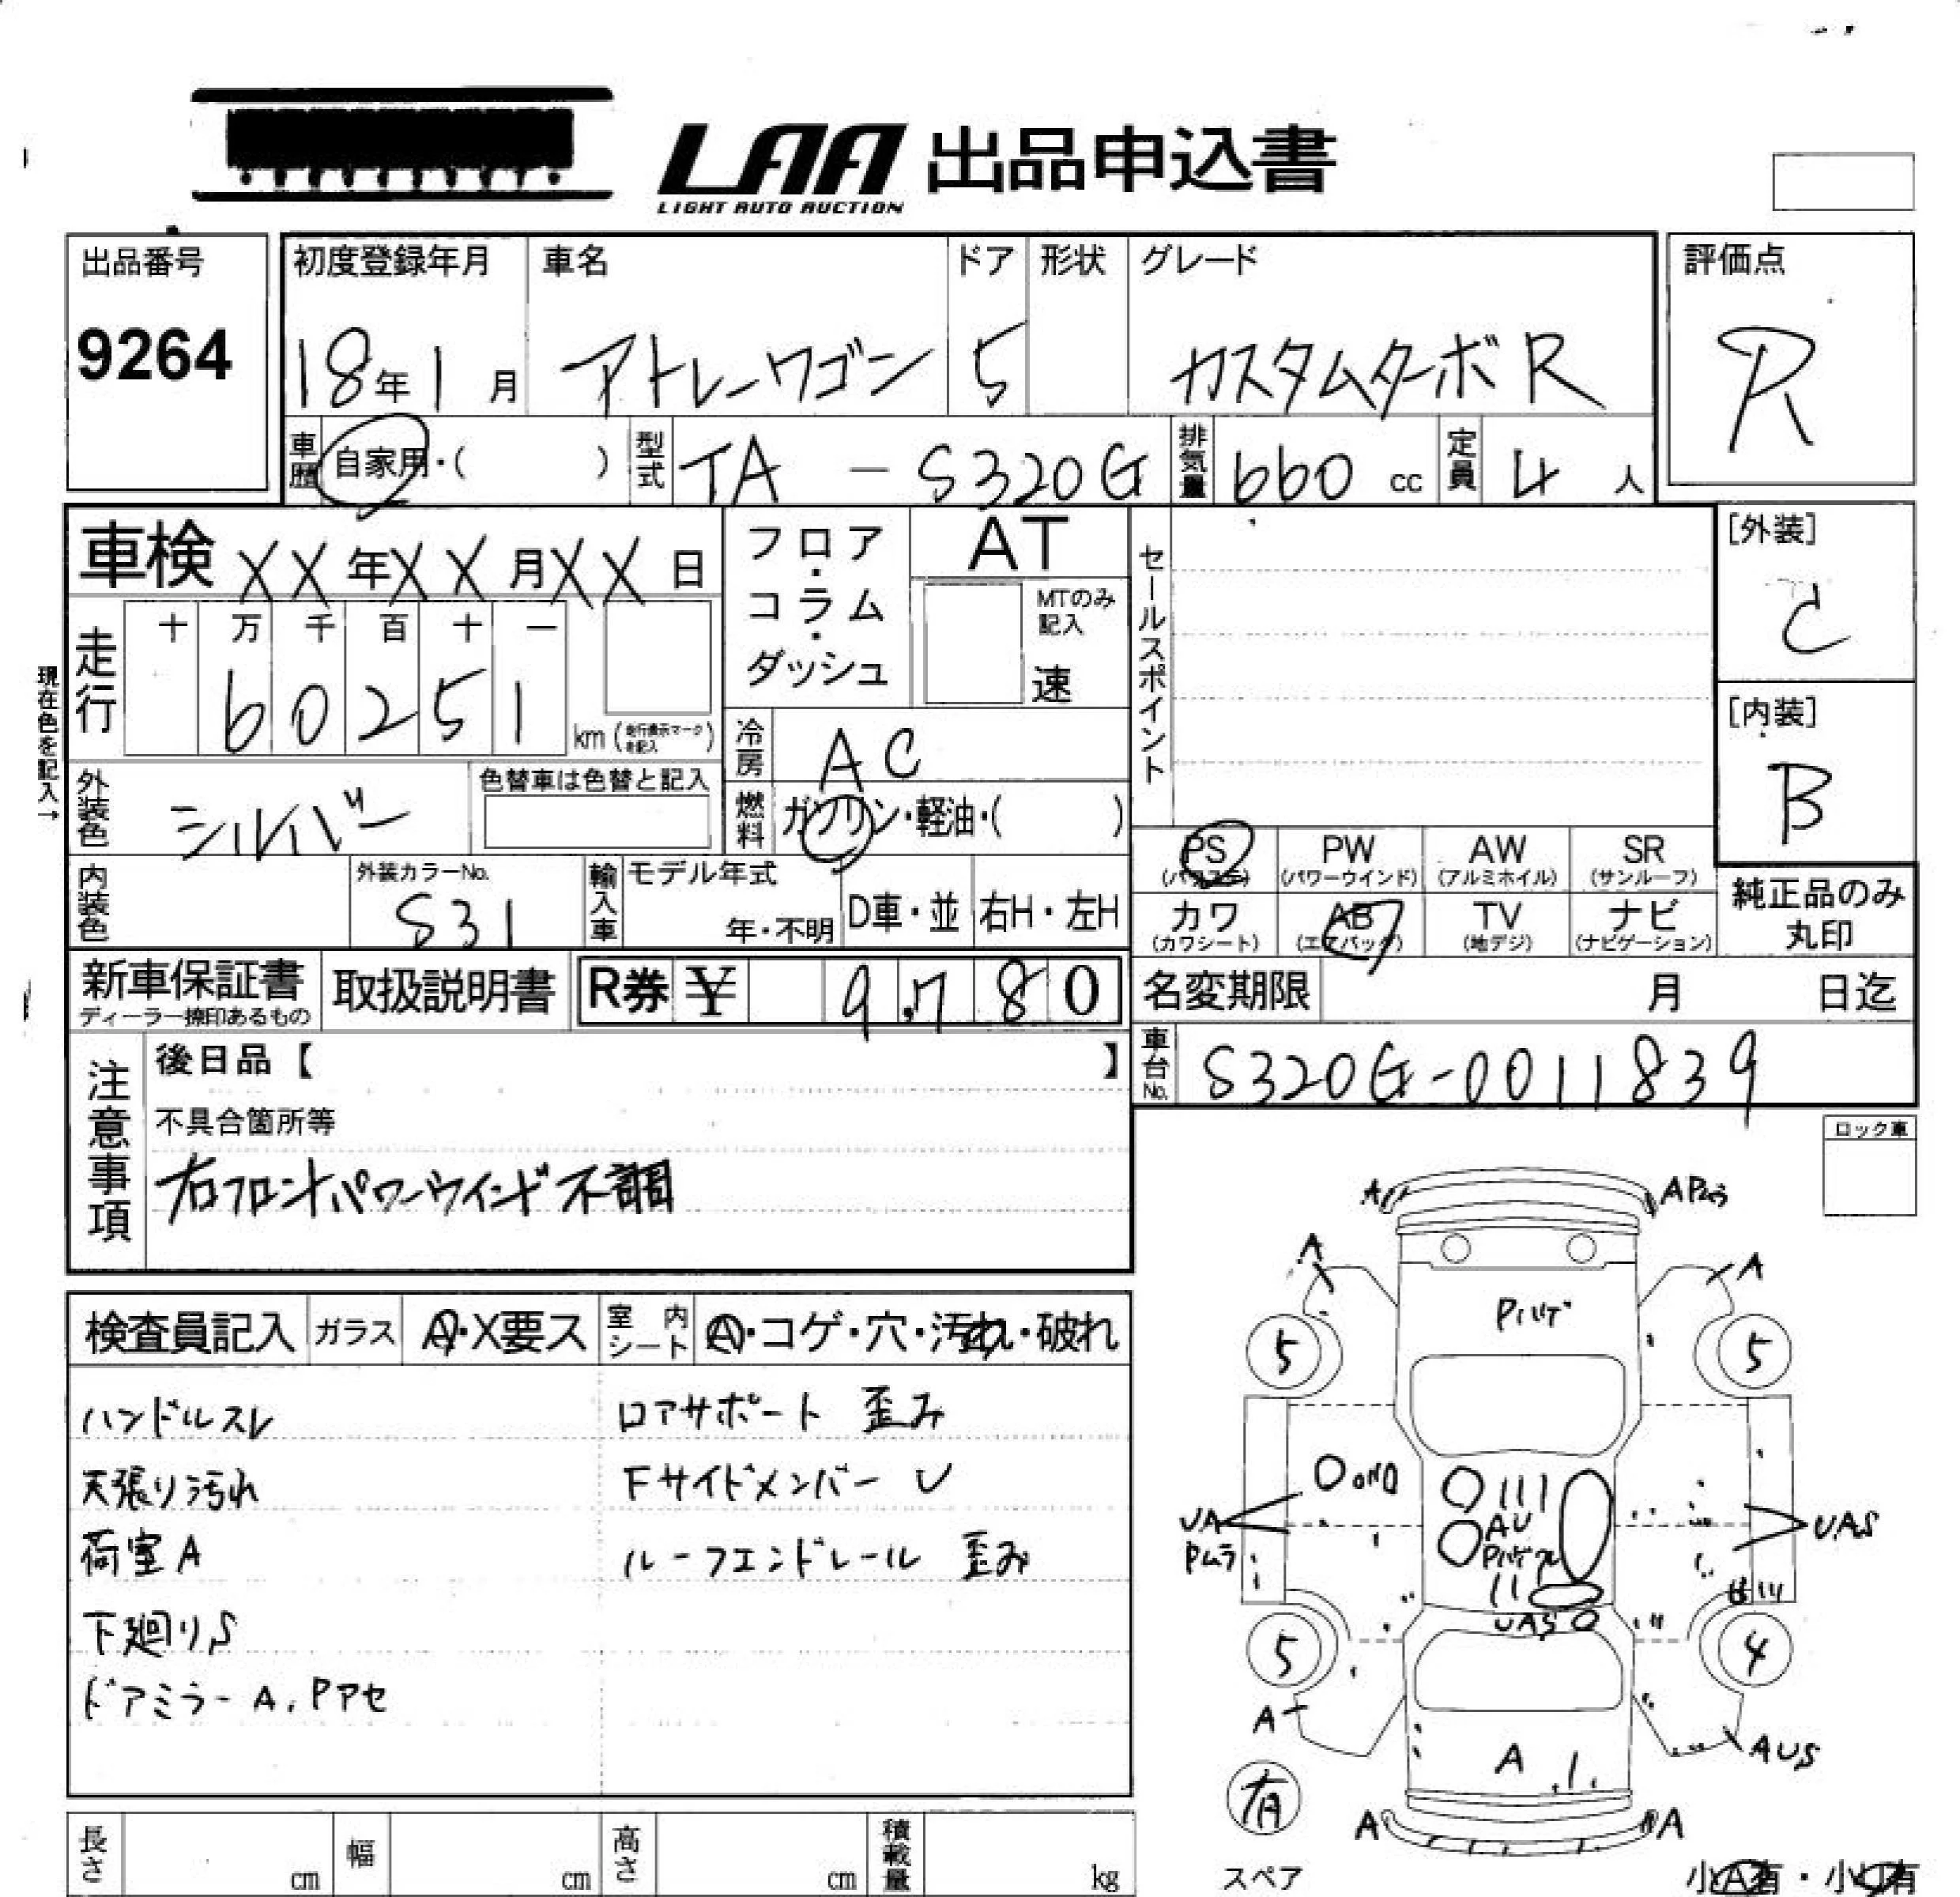 LAA 出品申込書
LIGHT AUTO AUCTION
出品番号
9264
初度登録年月 車名 ドア 形状 グレード
18年1月 アトレーワゴン 5 カスタムターボR
評価点
R
車歴 自家用・( ) 型式 TA - S320G 排気量 660 cc 定員 4 人
車検 XX年XX月XX日
フロア・コラム・ダッシュ
AT
MTのみ記入
速
セールスポイント
[外装]
C
[内装]
B
現在色を記入→
走行 十 万 千 百 十 一
60251 km (走行表示マークを記入)
冷房 AC
外装色 シルバー 色替車は色替と記入
燃料 ガソリン・軽油・( )
PS (パワステ) PW (パワーウインド) AW (アルミホイル) SR (サンルーフ)
カワ (カワシート) AB (エアバッグ) TV (地デジ) ナビ (ナビゲーション)
純正品のみ
丸印
内装色 外装カラーNo. S31 輸入車 モデル年式 年・不明 D車・並 右H・左H
新車保証書 取扱説明書 R券 ¥ 9,780
ディーラー捺印あるもの
名変期限 月 日迄
車台No. S320G-0011839
注意事項
後日品【 】
不具合箇所等
右フロントパワーウインド不調
ロック車
検査員記入 ガラス A・X要ス 室内シート A・コゲ・穴・汚れ・破れ
ハンドルスレ ロアサポート 歪み
天張り汚れ Fサイドメンバー U
荷室A ルーフエンドレール 歪み
下廻りS
ドアミラーA, Pアセ
A APムラ
A A
Pハゲ
5 5
UA
Pムラ
AU
UAS
UAS
5 4
A
AUS
A
有
スペア
A A
小A有・小U有
長さ cm 幅 cm 高さ cm 積載量 kg